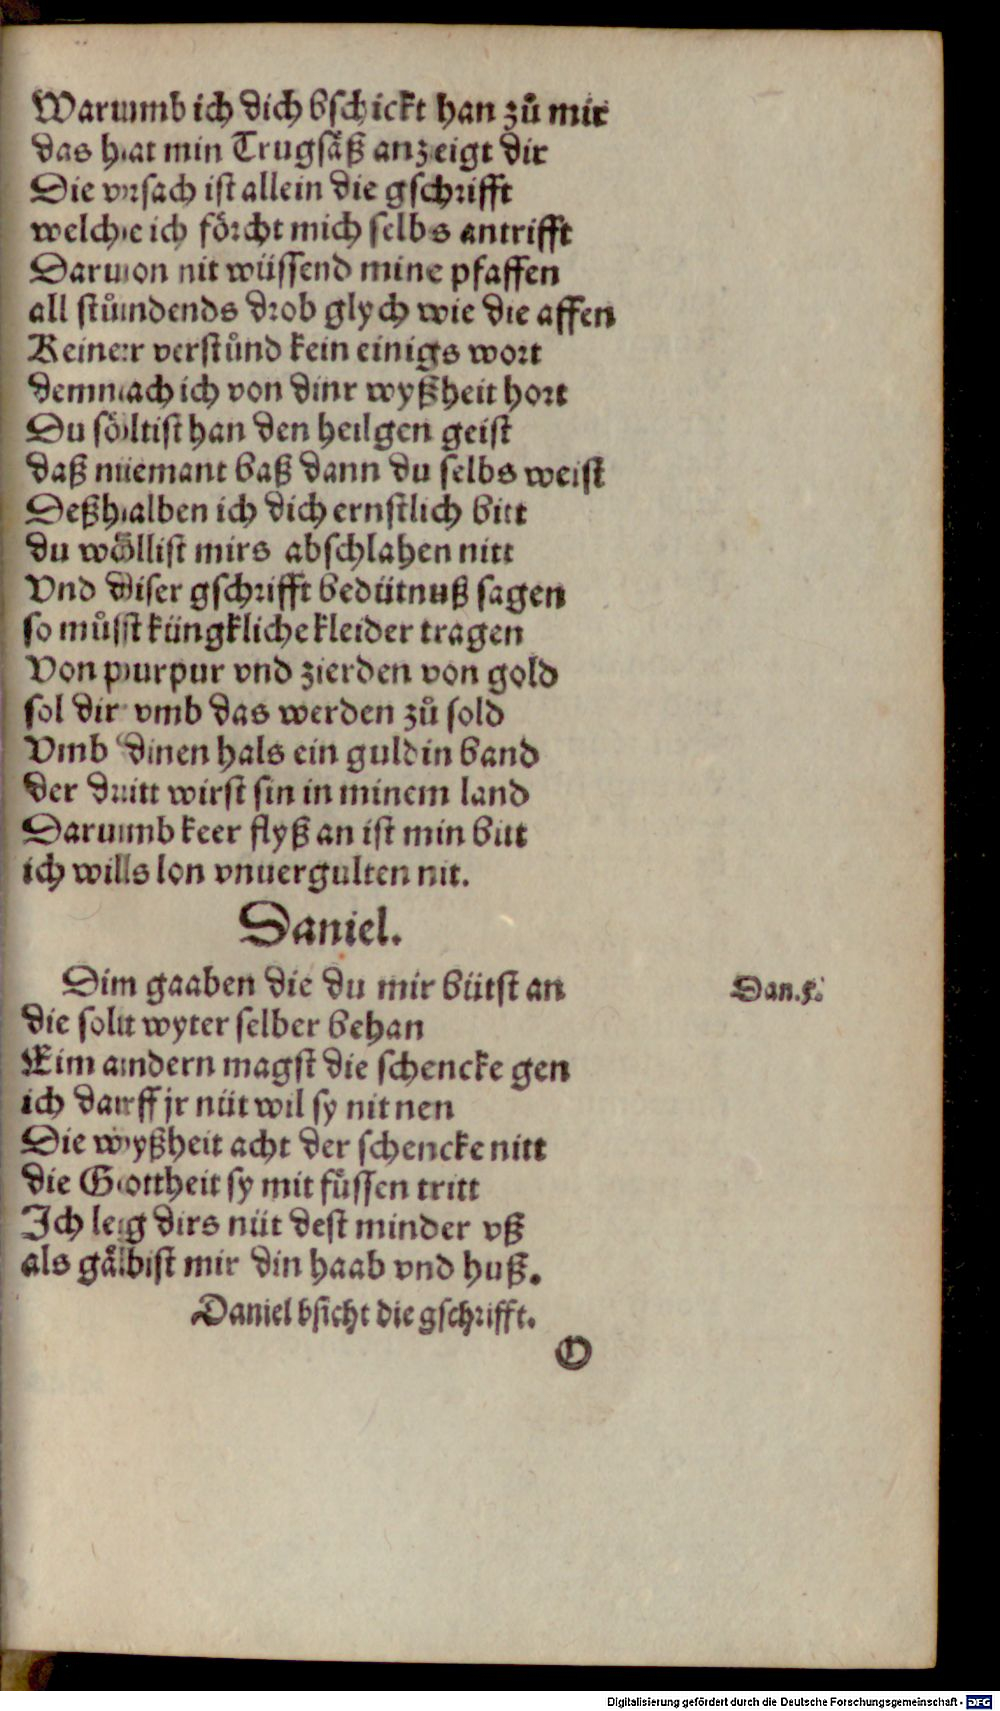 Warumb ich dich bschickt han zů mir
das hat min Trugsäß anzeigt dir
Die vrsach ist allein die gschrifft
welche ich förcht mich selbs antrifft
Daruon nit wüssend mine pfaffen
all stůndends drob glych wie die affen
Keiner verstůnd kein einigs wort
demnach ich von dinr wyßheit hort
Du söltist han den heilgen geist
daß niemant baß dann du selbs weist
Deßhalben ich dich ernstlich bitt
du wöllist mirs abschlahen nitt
Vnd diser gschrifft bedütnuß sagen
so můsst küngkliche kleider tragen
Von purpur vnd zierden von gold
sol dir vmb das werden zů sold
Vmb dinen hals ein guldin band
der dritt wirst sin in minem land
Darumb keer flyß an ist min bitt
ich wills lon vnuergulten nit.
Daniel.
Din gaaben die du mir bütst an
Dan.5.
die solt wyter selber behan
Eim andern magst die schencke gen
ich darff jr nüt wil sy nit nen
Die wyßheit acht der schencke nitt
die Gottheit sy mit füssen tritt
Ich leg dirs nüt dest minder vß
als gäbist mir din haab vnd huß.
Daniel bsicht die gschrifft.
Digitalisierung gefördert durch die Deutsche Forschungsgemeinschaft - DFG